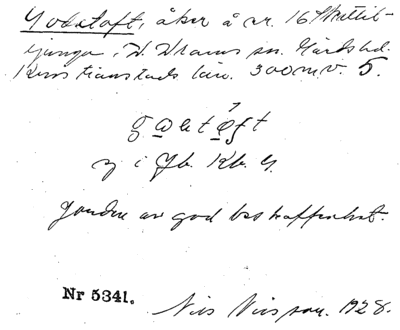 Gobetoft, åker å nr. 16 Skättil-
ljunga, V. Vrams sn. Gärds hd.
Kristianstads län. 300 m v. 5.
i Jb. Kb. G.
Jorden av god beskaffenhet.
Nr 5341. Nils Nilsson. 1928.